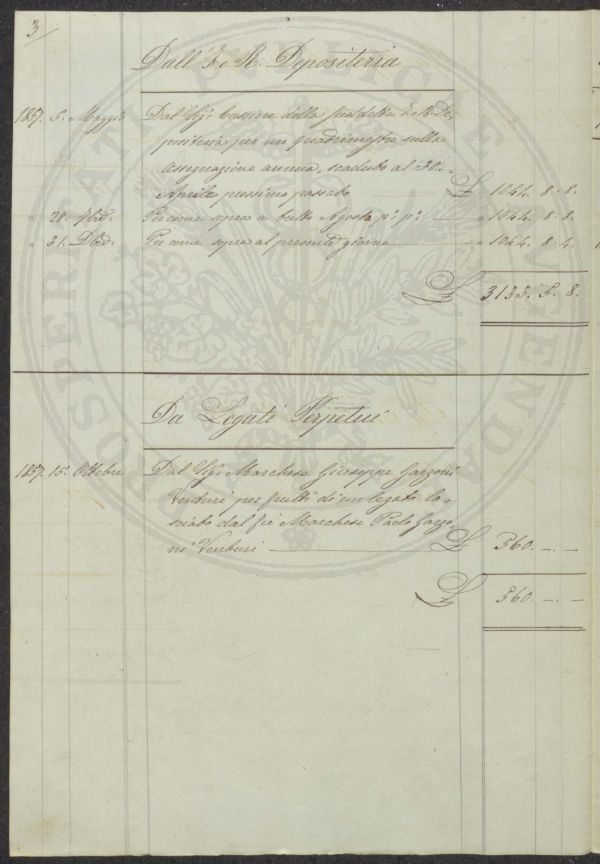 3
Dall' I. e R. Depositeria
1857. 5. Maggio Dal Sigr. Cassiere della suddetta I. e R. De-
positeria per un quadrimestre sulla
assegnazione annua, scaduto al 30.
Aprile prossimo passato £ 1044. 8. 8.
" 28. 7bre. Per come sopra a tutto Agosto po. po. " 1044. 8. 8.
" 31. Dbre. Per come sopra al presente giorno " 1044. 8. 4.
£ 3133. 5. 8.
Da Legati Perpetui
1857. 15. Ottobre Dal Sigr. Marchese Giuseppe Garzoni
Venturi per frutti di un legato la-
sciato dal fù Marchese Paolo Garzo-
ni Venturi £ 560. -. -
£ 560. -. -
PROSPERITATI PUBLICAE AUGENDAE